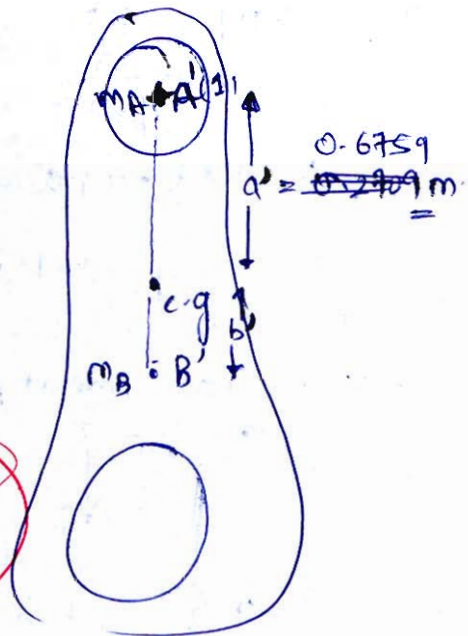 mA A'(1)
0.6759
a' = m.
c.g
b'
mB B'